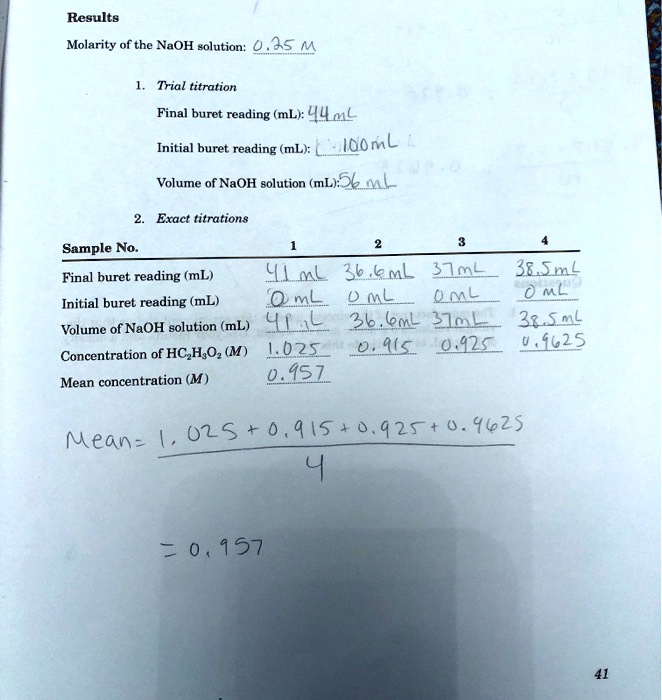 Results
Molarity of the NaOH solution: 0.25 M
1. Trial titration
Final buret reading (mL): 44 mL
Initial buret reading (mL): 100 mL
Volume of NaOH solution (mL): 56 mL
2. Exact titrations
Sample No. 1 2 3 4
Final buret reading (mL) 41 mL 36.6 mL 37 mL 38.5 mL
Initial buret reading (mL) 0 mL 0 mL 0 mL 0 mL
Volume of NaOH solution (mL) 41 mL 36.6 mL 37 mL 38.5 mL
Concentration of HC₂H₃O₂ (M) 1.025 0.915 0.925 0.9625
Mean concentration (M) 0.957
Mean= 1.025 + 0.915 + 0.925 + 0.9625
4
= 0.957
41